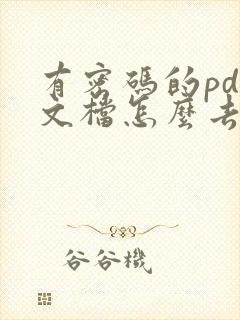 有密碼的pd
文檔怎麼去
谷谷機